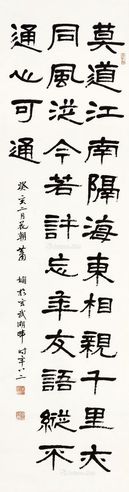 莫道江南隔海東相親千里亦
同風從今若許忘年友語縱不
通心可通
癸亥二月花朝蕭
嫻於玄武湖畔時年八二